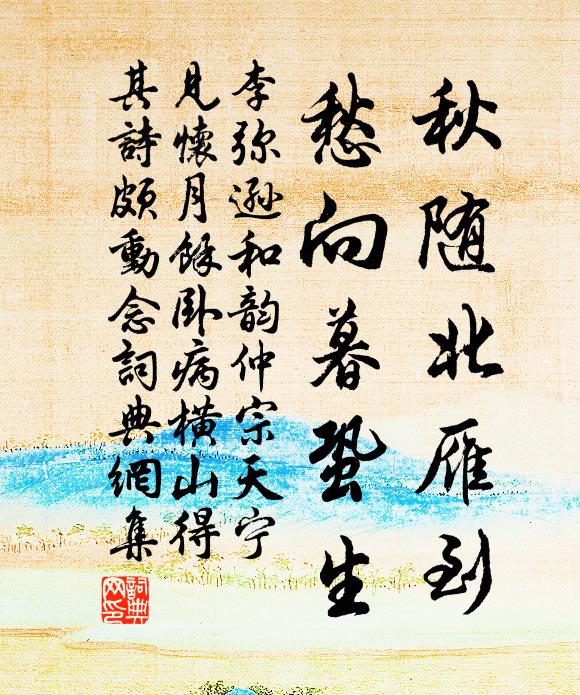 秋随北雁到
愁向暮蛩生
李弥逊和韵仲宗天宁
见怀月余卧病横山得
其詩頗動念詞典網集
詞典
网印